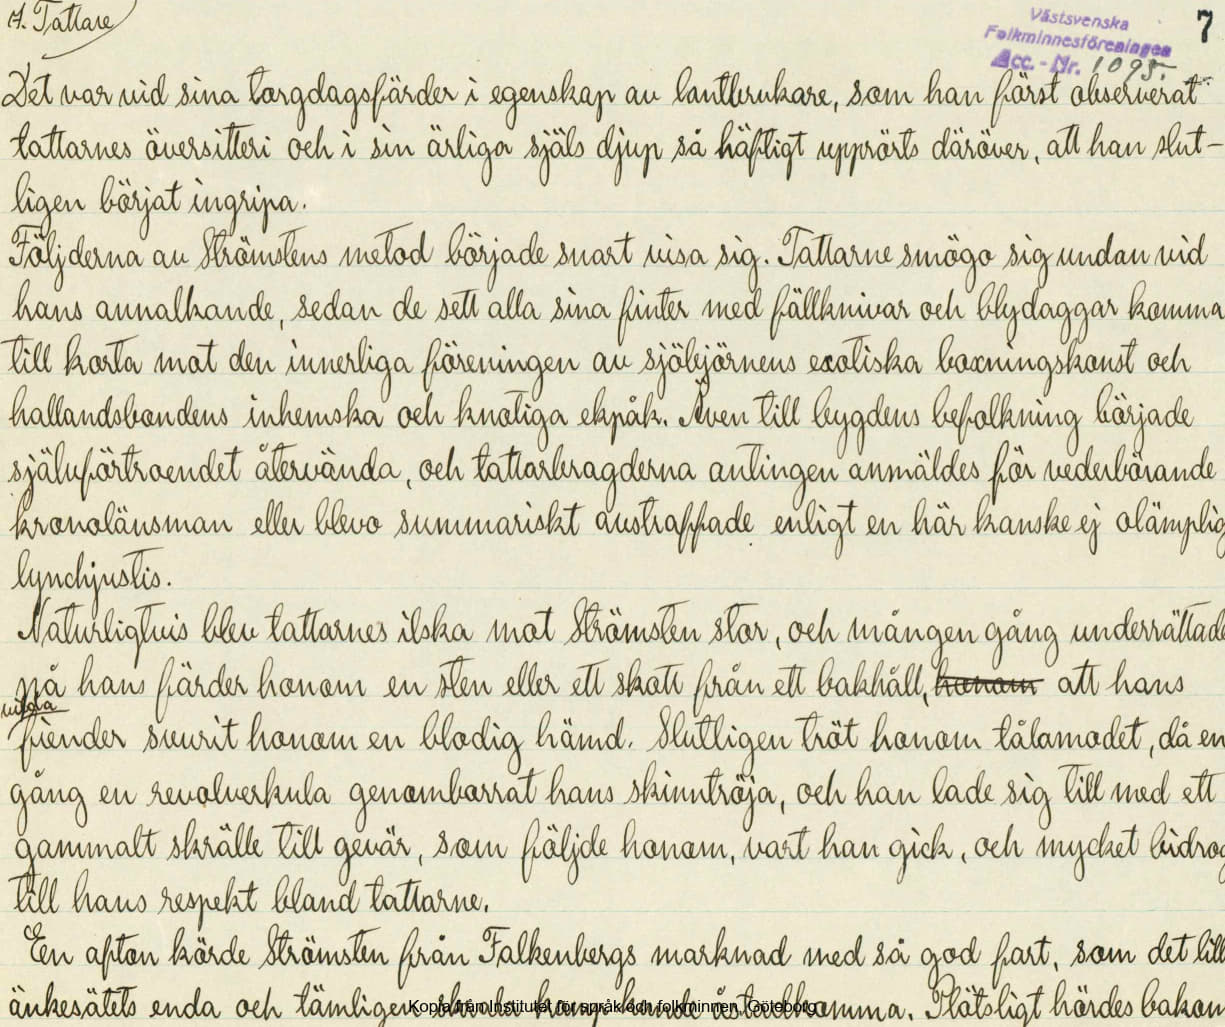 A. Tattare
Västsvenska
Folkminnesföreningen
Acc. - Nr. 1095.
7
Det var vid sina torgdagsfärder i egenskap av lantbrukare, som han först observerat
tattarnes översitteri och i sin ärliga själs djup så häftigt upprörts däröver, att han slut-
ligen börjat ingripa.
Följderna av Strömstens metod började snart visa sig. Tattarne smögo sig undan vid
hans annalkande, sedan de sett alla sina finter med fällknivar och blydaggar komma
till korta mot den innerliga föreningen av sjöbjörnens exotiska boxningskonst och
hallandsbondens inhemska och knotiga ekpåk. Även till bygdens befolkning började
självförtroendet återvända, och tattarbragderna antingen anmäldes för vederbörande
kronolänsman eller blevo summariskt avstraffade enligt en här kanske ej olämplig
lynchjustis.
Naturligtvis blev tattarnes ilska mot Strömsten stor, och mången gång underrättade
på hans färder honom en sten eller ett skott från ett bakhåll, honom att hans
vilda
fiender svurit honom en blodig hämd. Slutligen tröt honom tålamodet, då en
gång en revolverkula genomborrat hans skinntröja, och han lade sig till med ett
gammalt skrälle till gevär, som följde honom, vart han gick, och mycket bidrog
till hans respekt bland tattarne.
En afton körde Strömsten från Falkenbergs marknad med så god fart, som det lill
änkesätets enda och tämligen kunde åstadkomma. Plötsligt hördes bakom
Kopia från Institutet för språk och folkminnen, Göteborg